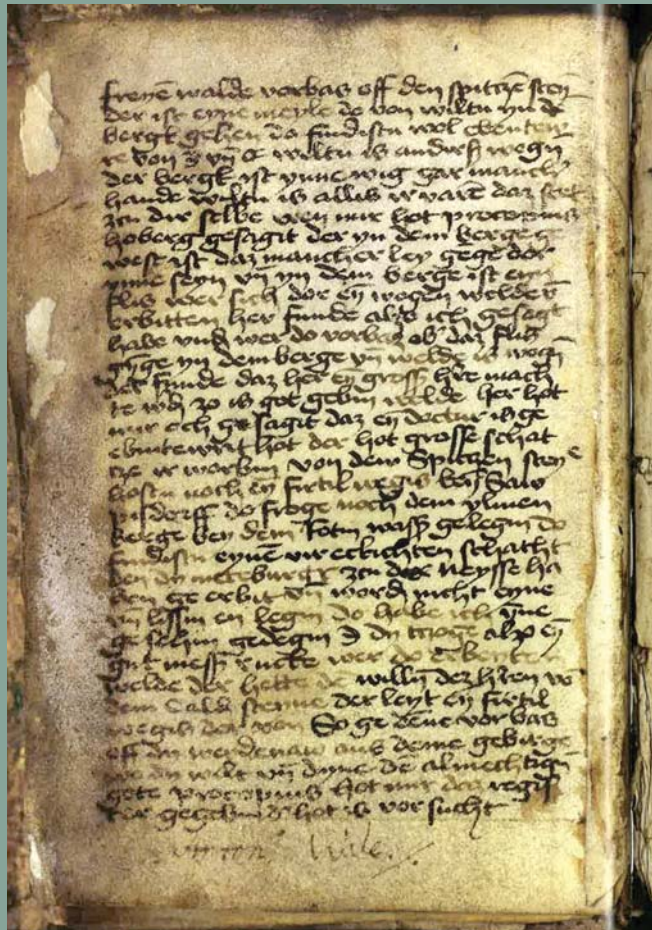 freyē walde vorbas off den spitczē steȳ
der ist eyne meyle do von wiltu yn dē
bergk gehen do findistu wol ebentew
re von vn̄ wiltu is andirß wegn̄
der bergk ist ynne wig gar manch
hande wiltu is allis ir varē daz stet
zcu dir selbe wen mir hot procopius
hoberg gesagit der yn dem berge ge
west ist daz mancher ley gēge dor
ynne seyn vn̄ yn dem berge ist eyn
flis wer sich dor eȳ wogen welde
irbitten her funde alzo ich gesagt
habe vnd wer do vorbas ob daz flis
ginge yn dem berge vn̄ welde is wogn̄
der funde daz her eȳ groß here mach
te zo is got gebin welde her hot
mir och gesagit daz eȳ doctur is ge
ebintewrit hot der hot grosse schat
cze ir worbin von dem Spitczen steyne
host noch eȳ firtil wegis ken
do froge noch dem ylmen
berge ken dem Rotin waß gelegin do
findistu eynē vireckichten schacht
den dy meteburger zcu der neysse ha
ben ge erbit vn̄ word nicht eyne
vn̄ lissin en legin do habe ich ynne
ge sehin gedegin dy czoge alzo eȳ
gut messir rucke wer do erbeten
welde der hette dē willn̄ dez h'ren vō
dem Calde steyne der leyt eȳ firtil
wegis dor von So ge dēne vor bas
off dy werdenaw aus deme gebirge
wo du wilt vn̄ dyne dē almechtign̄
gote procopius hot mir daz regis
ter gegebin d' hot is vor sucht